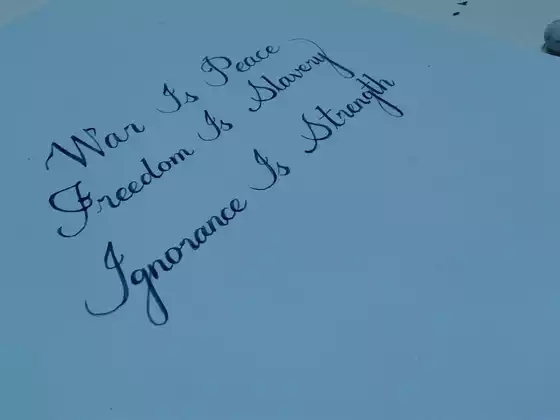 War Is Peace
Freedom Is Slavery
Ignorance Is Strength